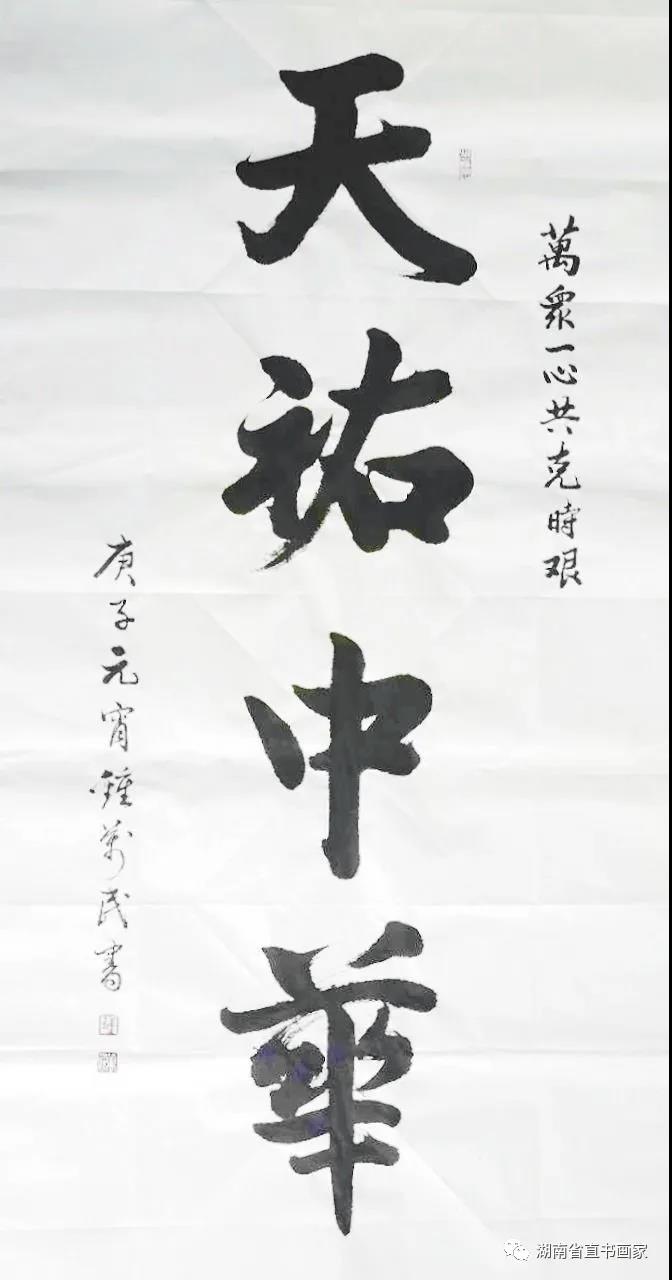 萬眾一心共克時艰
天祐中華
庚子元宵鍾萬民書
湖南省直书画家